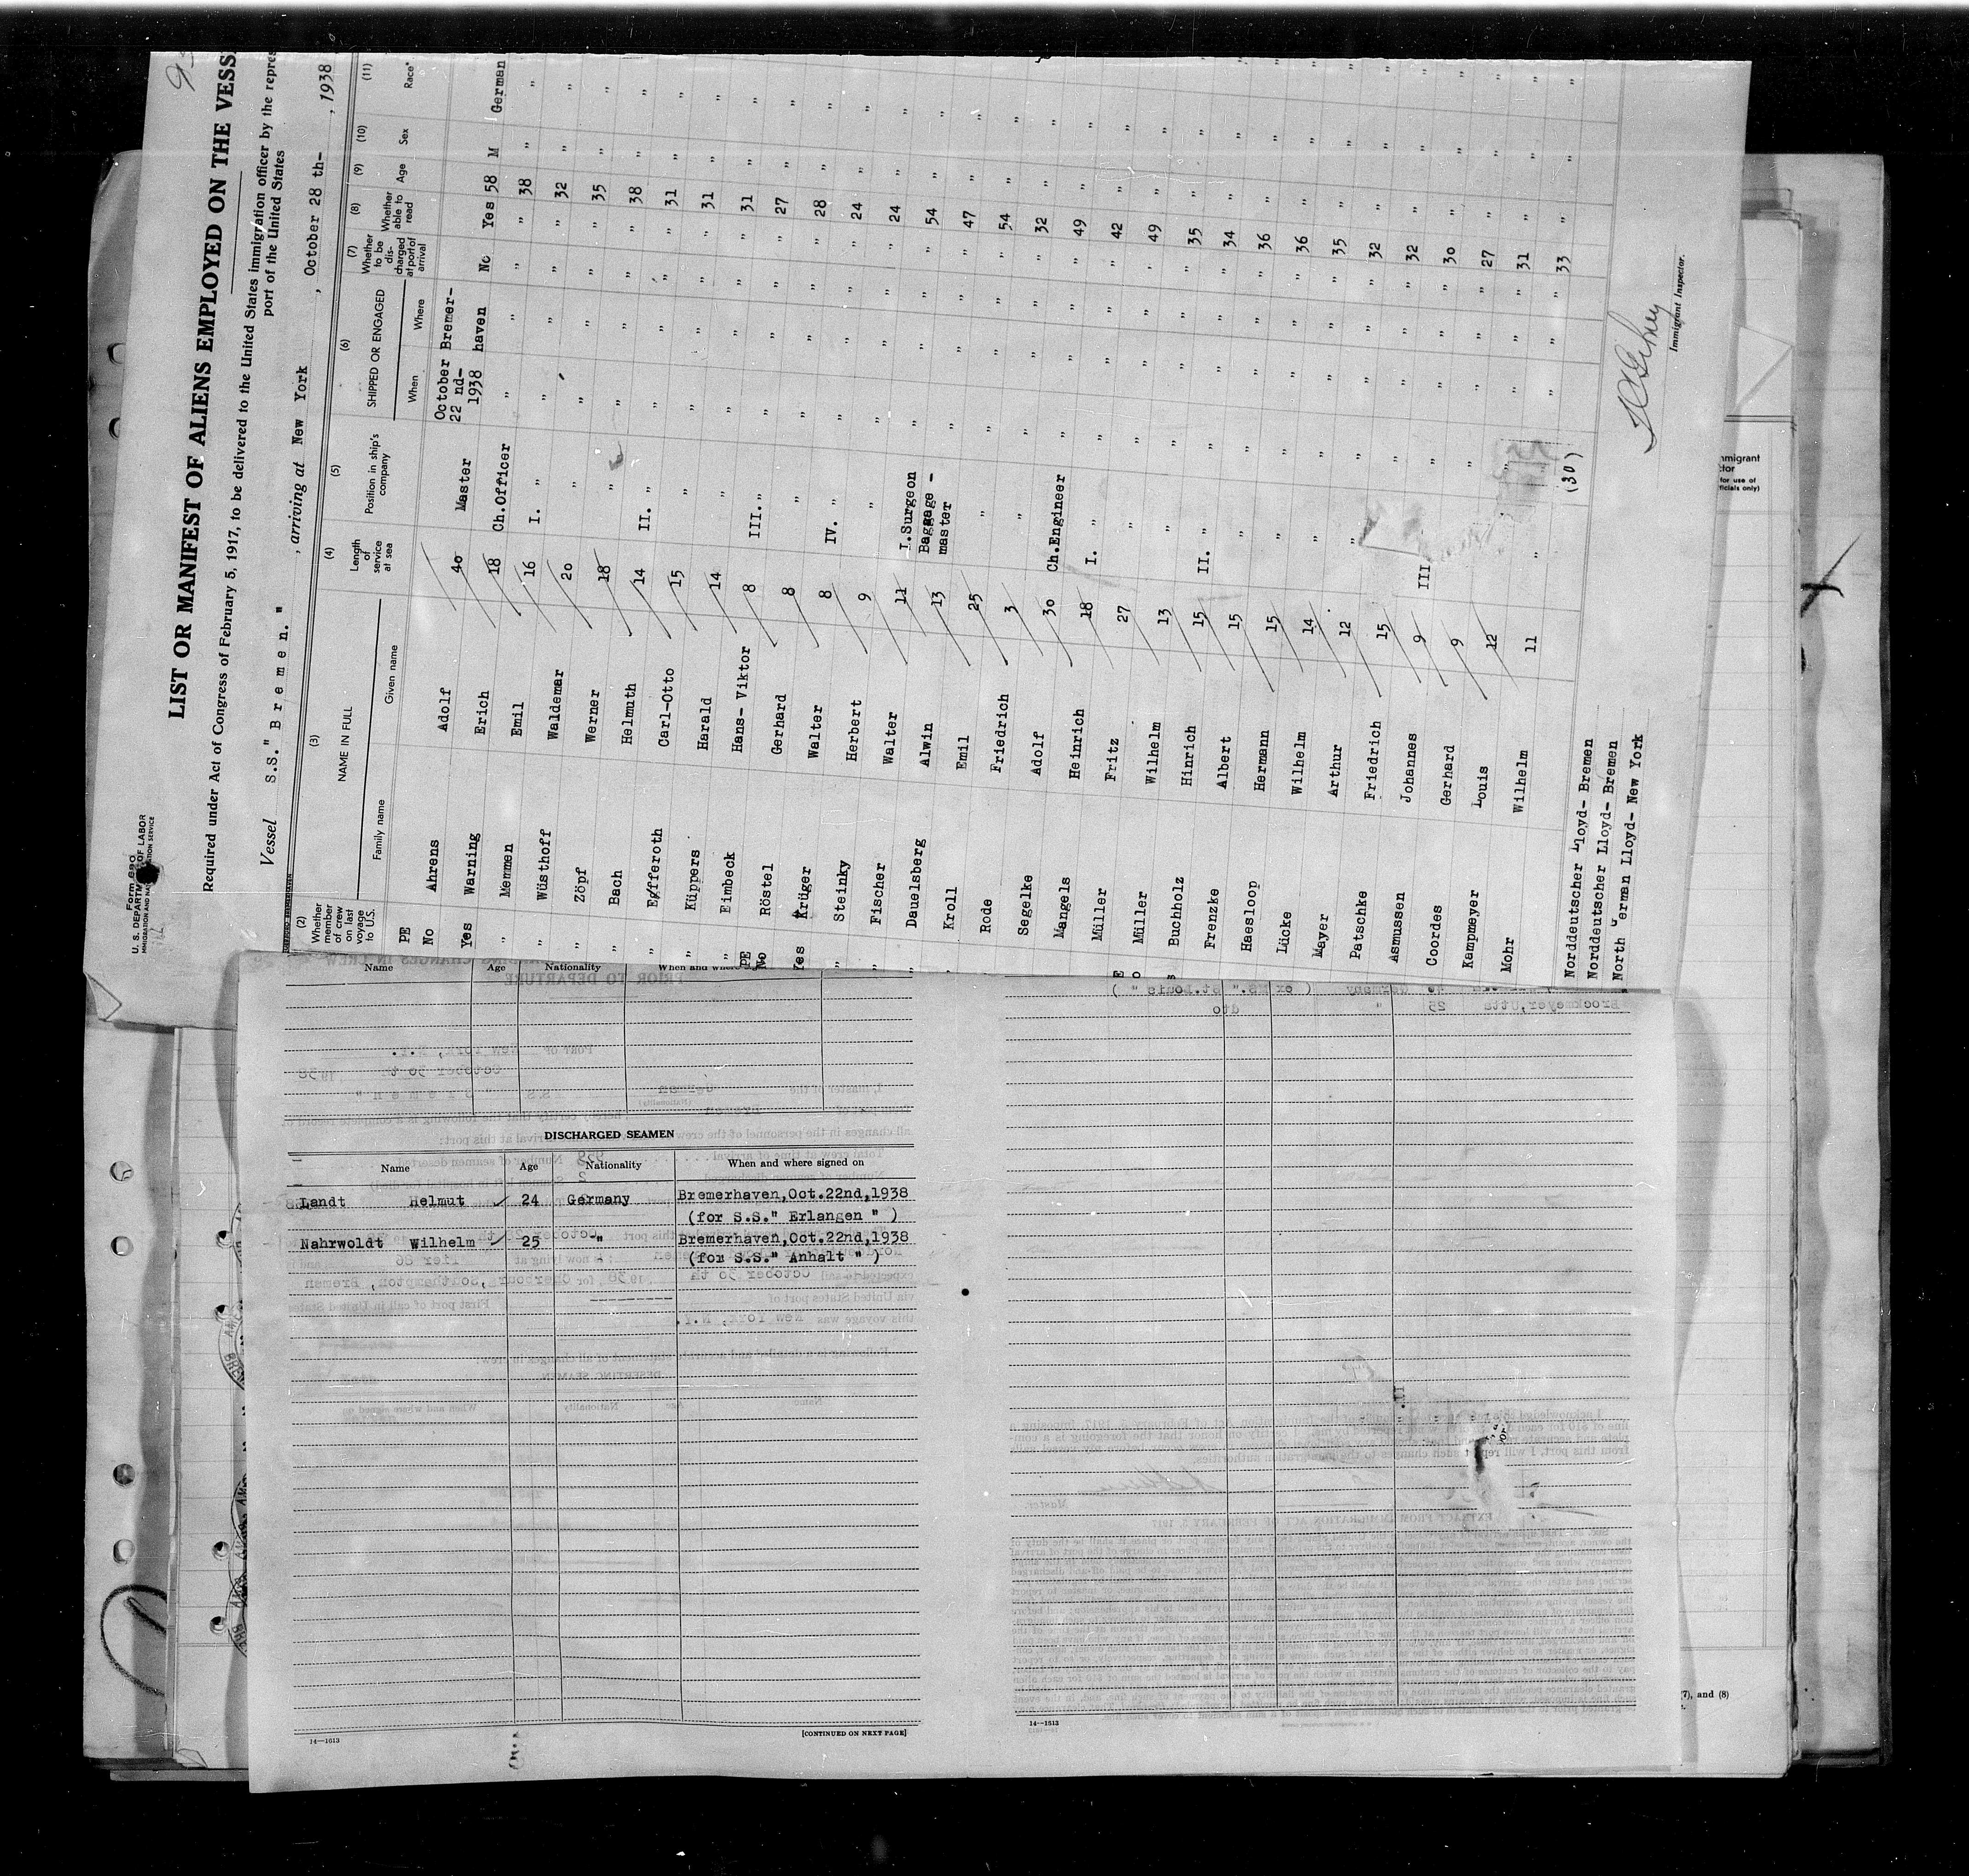 Form 680
U. S. DEPARTMENT OF LABOR
IMMIGRATION AND NATURALIZATION SERVICE
LIST OR MANIFEST OF ALIENS EMPLOYED ON THE VESS
Required under Act of Congress of February 5, 1917, to be delivered to the United States immigration officer by the repres
port of the United States
Vessel S.S." B r e m e n. " , arriving at New York , October 28 th- , 1938
(2) (3) (4) (5) (6) (7) (8) (9) (10) (11)
Whether member of crew on last voyage to U.S.
NAME IN FULL
Family name Given name
Length of service at sea
Position in ship's company
SHIPPED OR ENGAGED
When Where
Whether to be discharged at port of arrival
Whether able to read
Age Sex Race*
PE
No Ahrens Adolf 40 Master October 22 nd- 1938 Bremerhaven No Yes 58 M German
Yes Warning Erich 18 Ch.Officer " " " " 38 " "
" Memmen Emil 16 I. " " " " " 32 " "
" Wüsthoff Waldemar 20 " " " " " 35 " "
" Zöpf Werner 18 " " " " " 38 " "
" Bach Helmuth 14 II. " " " " " 31 " "
" Efferoth Carl-Otto 15 " " " " " 31 " "
" Küppers Harald 14 " " " " " 31 " "
" Eimbeck Hans- Viktor 8 III. " " " " " 27 " "
PE
No Röstel Gerhard 8 " " " " " 28 " "
Yes Krüger Walter 8 IV. " " " " " 24 " "
" Steinky Herbert 9 " " " " " 24 " "
" Fischer Walter 11 I.Surgeon " " " " 54 " "
" Dauelsberg Alwin 13 Baggage - master " " " " 47 " "
Kroll Emil 25 " " " " " 54 " "
Rode Friedrich 3 " " " " " 32 " "
Segelke Adolf 30 Ch.Engineer " " " " 49 " "
Mangels Heinrich 18 I. " " " " " 42 " "
Müller Fritz 27 " " " " " 49 " "
Müller Wilhelm 13 " " " " " 35 " "
Buchholz Hinrich 15 II. " " " " " 34 " "
Frenzke Albert 15 " " " " " 36 " "
Haesloop Hermann 15 " " " " " 36 " "
Lücke Wilhelm 14 " " " " " 35 " "
Mayer Arthur 12 " " " " " 32 " "
Patschke Friedrich 15 " " " " 32 " "
Asmussen Johannes 9 III " " " " 30 " "
Coordes Gerhard 9 " " " " 27 " "
Kampmeyer Louis 12 " " " " 31 " "
Mohr Wilhelm 11 " " " " " 33 " "
(30)
Norddeutscher Lloyd- Bremen
Norddeutscher Lloyd- Bremen
North German Lloyd- New York
Immigrant Inspector.
Name Age Nationality
DISCHARGED SEAMEN
Name Age Nationality When and where signed on
Landt Helmut 24 Germany Bremerhaven,Oct.22nd,1938
(for S.S." Erlangen " )
Nahrwoldt Wilhelm 25 -" Bremerhaven,Oct.22nd,1938
(for S.S." Anhalt " )
14—1613
[CONTINUED ON NEXT PAGE]
14—1613
mmigrant
ctor
for use of
ficials only)
(7), and (8)